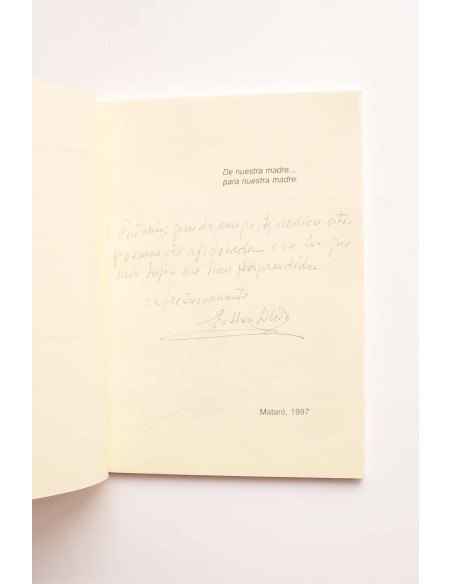 De nuestra madre...
para nuestra madre.
Antonio, querido amigo, te dedico estos
poemas de aficionada con los que
mis hijos me han sorprendido.
afectuosamente
Esther
Mataró, 1997